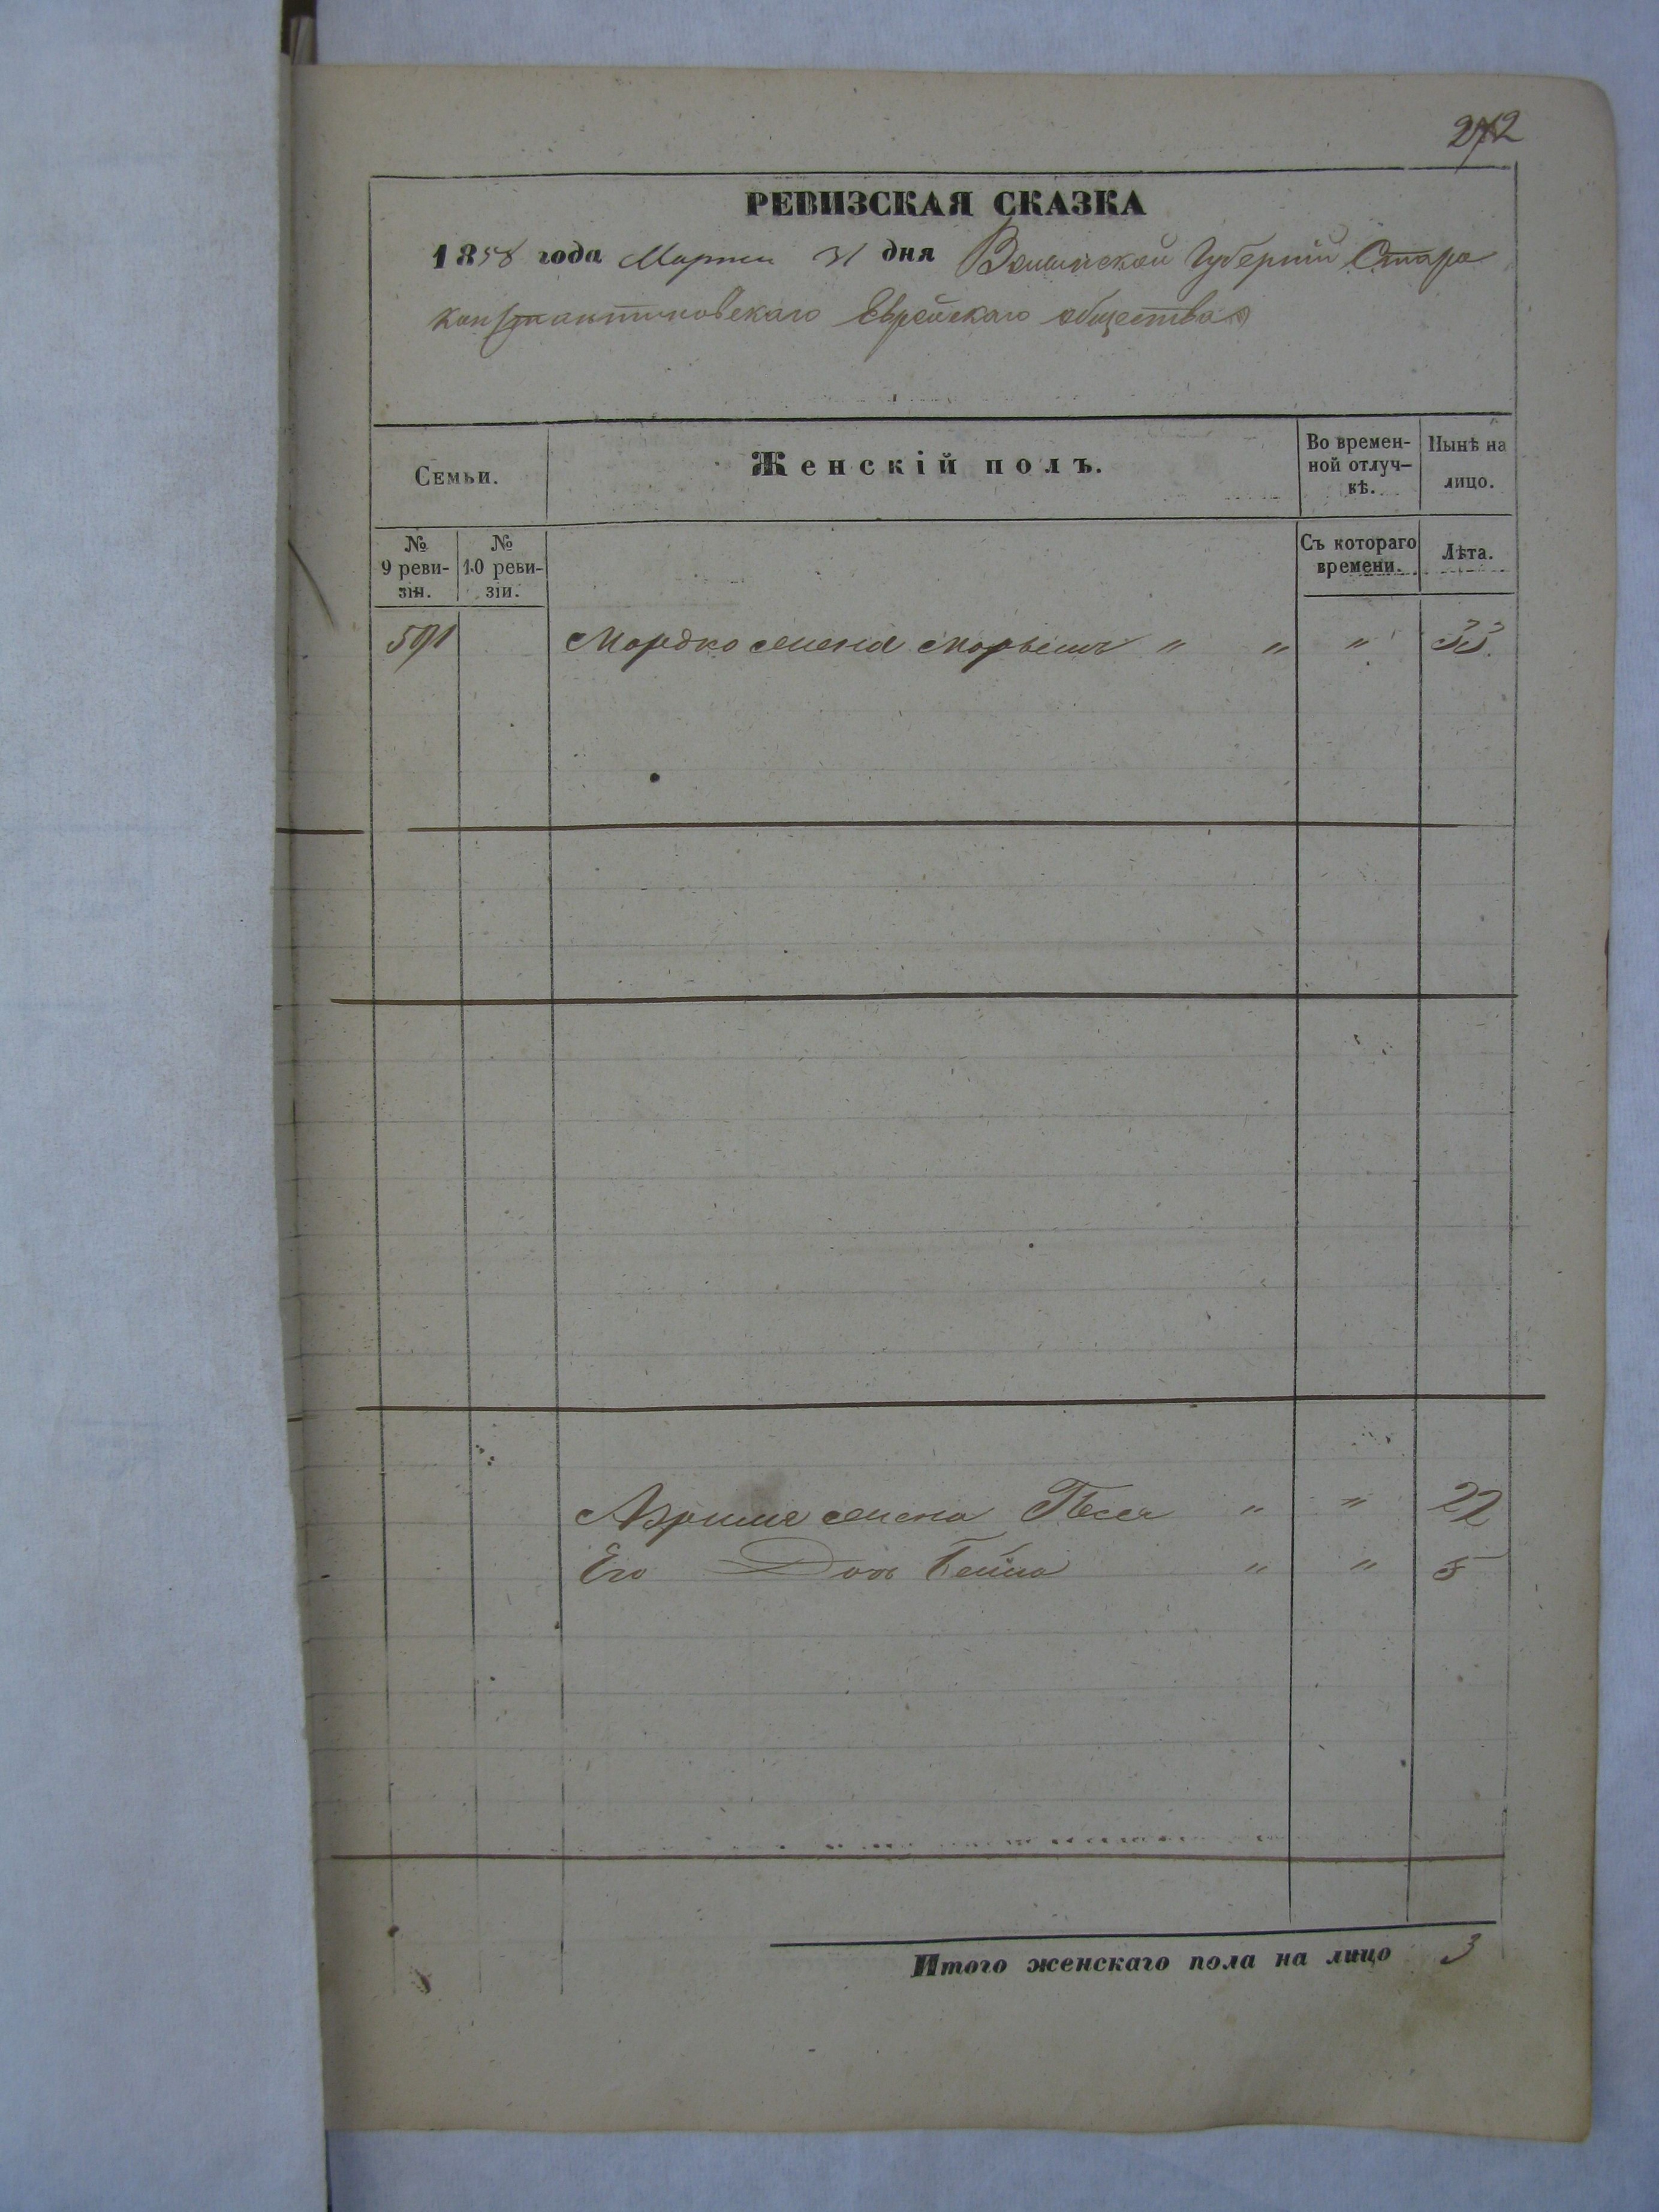 272
РЕВИЗСКАЯ СКАЗКА
1858 года Марта 31 дня Волынской Губерніи Старо
константиновскаго Еврейскаго общества
Семьи.
Женскій полъ.
Во времен-
ной отлуч-
кѣ.
Нынѣ на
лицо.
№
9 реви-
зіи.
№
10 реви-
зіи.
Съ котораго
времени.
Лѣта.
591 Мордко жена " " "
жена Песя " " 22
Его Дочь Бейла " " 5
Итого женскаго пола на лицо 3